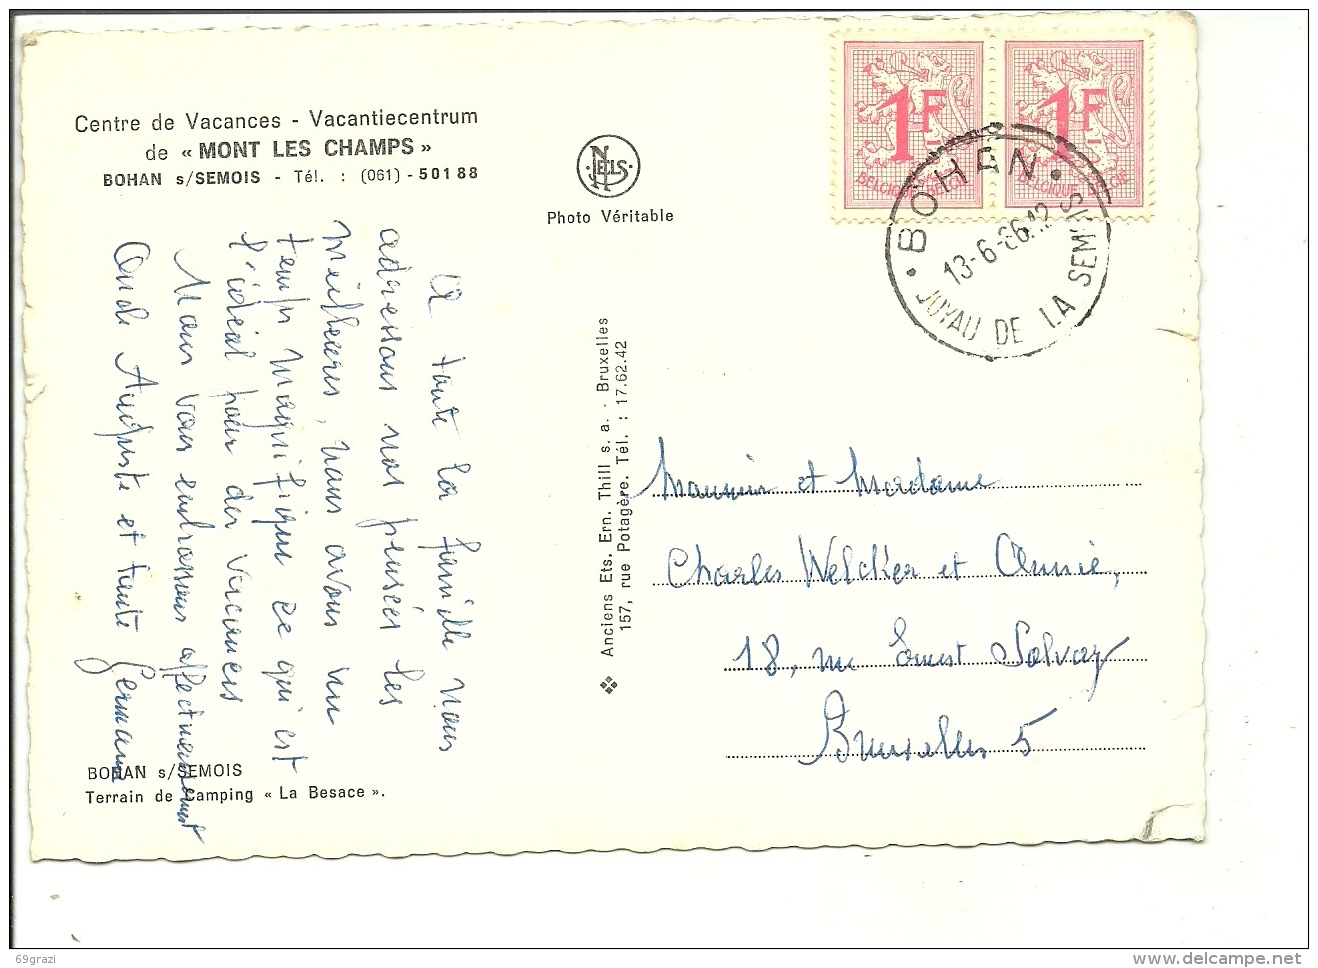 Centre de Vacances - Vacantiecentrum
de « MONT LES CHAMPS »
BOHAN s/SEMOIS - Tél. : (061) - 501 88
NELS
Photo Véritable
1F
BELGIQUE BELGIË
1F
BELGIQUE BELGIË
BOHAN
13-6-66.12
JOYAU DE LA SEMOIS
A toute la famille nous
adressons nos pensées les
meilleures, nous avons un
temps magnifique ce qui est
l'idéal pour des vacances
Nous vous embrassons affectueusement
Oncle Auguste et tante Germaine
Anciens Ets. Ern. Thill s. a. - Bruxelles
157, rue Potagère. Tél. : 17.62.42
Monsieur et Madame
Charles Welcker et Annie,
18, rue Ernest Solvay
Bruxelles 5
BOHAN s/SEMOIS
Terrain de Camping « La Besace ».
69grazi
www.delcampe.net